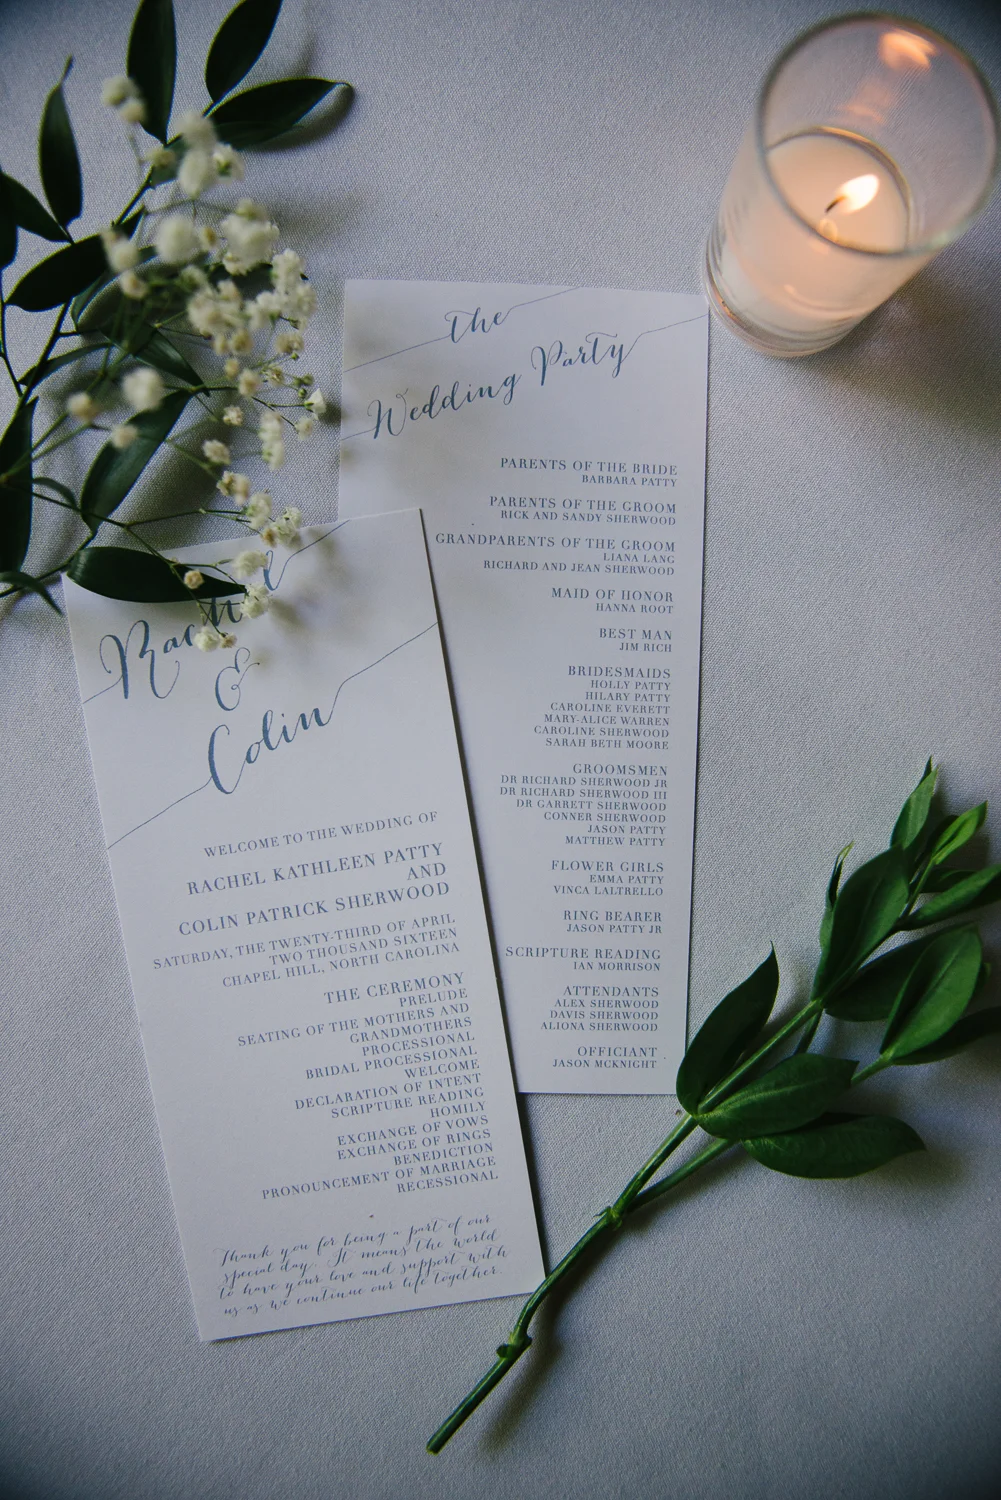 Rachel
&
Colin
WELCOME TO THE WEDDING OF
RACHEL KATHLEEN PATTY
AND
COLIN PATRICK SHERWOOD
SATURDAY, THE TWENTY-THIRD OF APRIL
TWO THOUSAND SIXTEEN
CHAPEL HILL, NORTH CAROLINA
THE CEREMONY
PRELUDE
SEATING OF THE MOTHERS AND
GRANDMOTHERS
PROCESSIONAL
BRIDAL PROCESSIONAL
WELCOME
DECLARATION OF INTENT
SCRIPTURE READING
HOMILY
EXCHANGE OF VOWS
EXCHANGE OF RINGS
BENEDICTION
PRONOUNCEMENT OF MARRIAGE
RECESSIONAL
Thank you for being a part of our
special day. It means the world
to have your love and support with
us as we continue our life together.
The
Wedding Party
PARENTS OF THE BRIDE
BARBARA PATTY
PARENTS OF THE GROOM
RICK AND SANDY SHERWOOD
GRANDPARENTS OF THE GROOM
LIANA LANG
RICHARD AND JEAN SHERWOOD
MAID OF HONOR
HANNA ROOT
BEST MAN
JIM RICH
BRIDESMAIDS
HOLLY PATTY
HILARY PATTY
CAROLINE EVERETT
MARY-ALICE WARREN
CAROLINE SHERWOOD
SARAH BETH MOORE
GROOMSMEN
DR RICHARD SHERWOOD JR
DR RICHARD SHERWOOD III
DR GARRETT SHERWOOD
CONNER SHERWOOD
JASON PATTY
MATTHEW PATTY
FLOWER GIRLS
EMMA PATTY
VINCA LALTRELLO
RING BEARER
JASON PATTY JR
SCRIPTURE READING
IAN MORRISON
ATTENDANTS
ALEX SHERWOOD
DAVIS SHERWOOD
ALIONA SHERWOOD
OFFICIANT
JASON MCKNIGHT